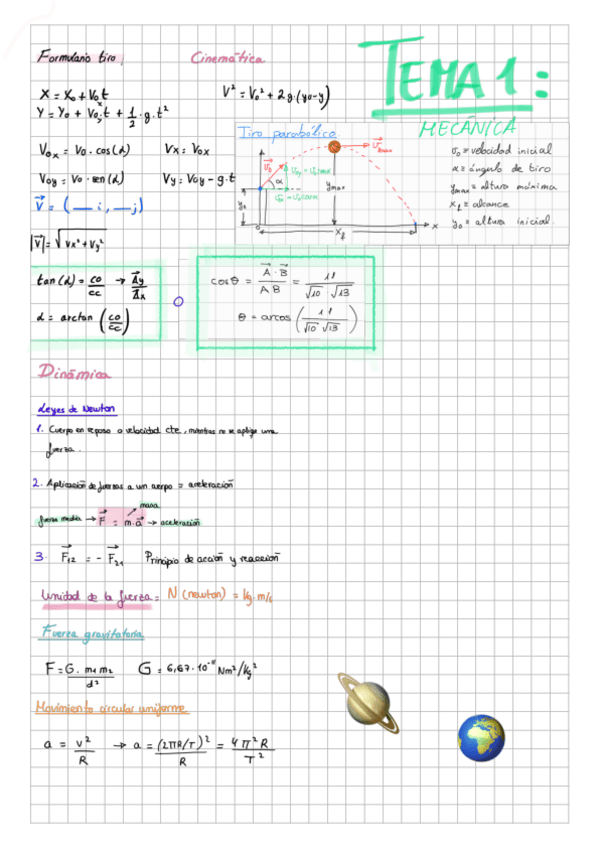 Formulario tiro:
Cinemática
TEMA 1:
MECÁNICA
X = X₀ + V₀ₓt
V² = V₀² + 2g·(y₀-y)
Y = Y₀ + V₀ᵧt + 1/2 · g · t²
V₀ₓ = V₀ · cos(α) Vx = V₀x
V₀y = V₀ · sen(α) Vy = V₀y - g·t
V⃗ = (__ i, __ j)
|V⃗| = √(Vx² + Vy²)
Tiro parabólico
α
ymax
x
xf
σ₀ = velocidad inicial
α = ángulo de tiro
ymax = altura máxima
xf = alcance
y₀ = altura inicial.
tan(α) = co/cc → A⃗y/A⃗x
α = arctan (co/cc)
o
cosθ = A⃗ · B⃗ / A B = 11 / √10 · √13
θ = arcos (11 / √10 √13)
Dinámica
Leyes de Newton
1. Cuerpo en reposo o velocidad cte, mientras no se aplique una
fuerza.
2. Aplicación de fuerzas a un cuerpo = aceleración
masa
fuerza media → F⃗ = m·a⃗ → aceleración
3. F⃗₁₂ = - F⃗₂₁ Principio de acción y reacción
Unidad de la fuerza = N (newton) = kg·m/s
Fuerza gravitatoria
F = G · m₁ m₂ / d² G = 6,67·10⁻¹¹ Nm²/kg²
Movimiento circular uniforme
a = v²/R → a = (2πR/T)²/R = 4π²R/T²